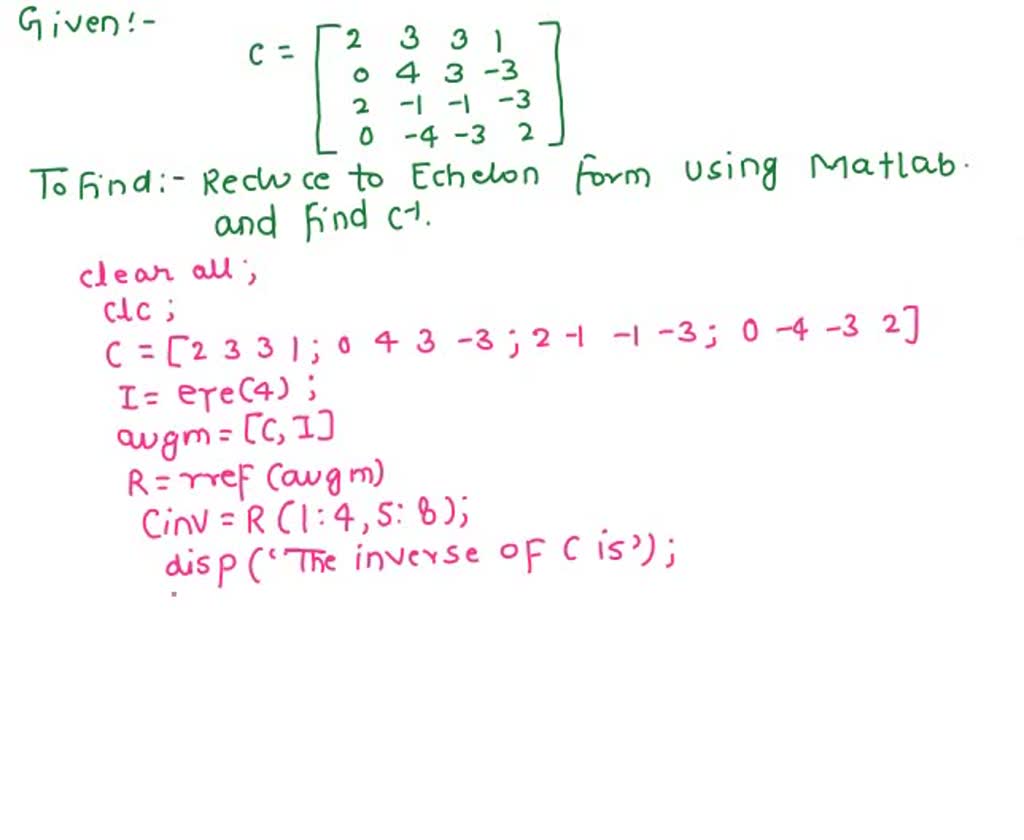 Given:-
C = [ 2 3 3 1
0 4 3 -3
2 -1 -1 -3
0 -4 -3 2 ]
To Find:- Reduce to Echelon form using Matlab.
and find C-1.
clear all;
clc;
C = [2 3 3 1; 0 4 3 -3; 2 -1 -1 -3; 0 -4 -3 2]
I = eye(4);
augm = [C, I]
R = rref (augm)
Cinv = R (1:4, 5:8);
disp ('The inverse of C is');